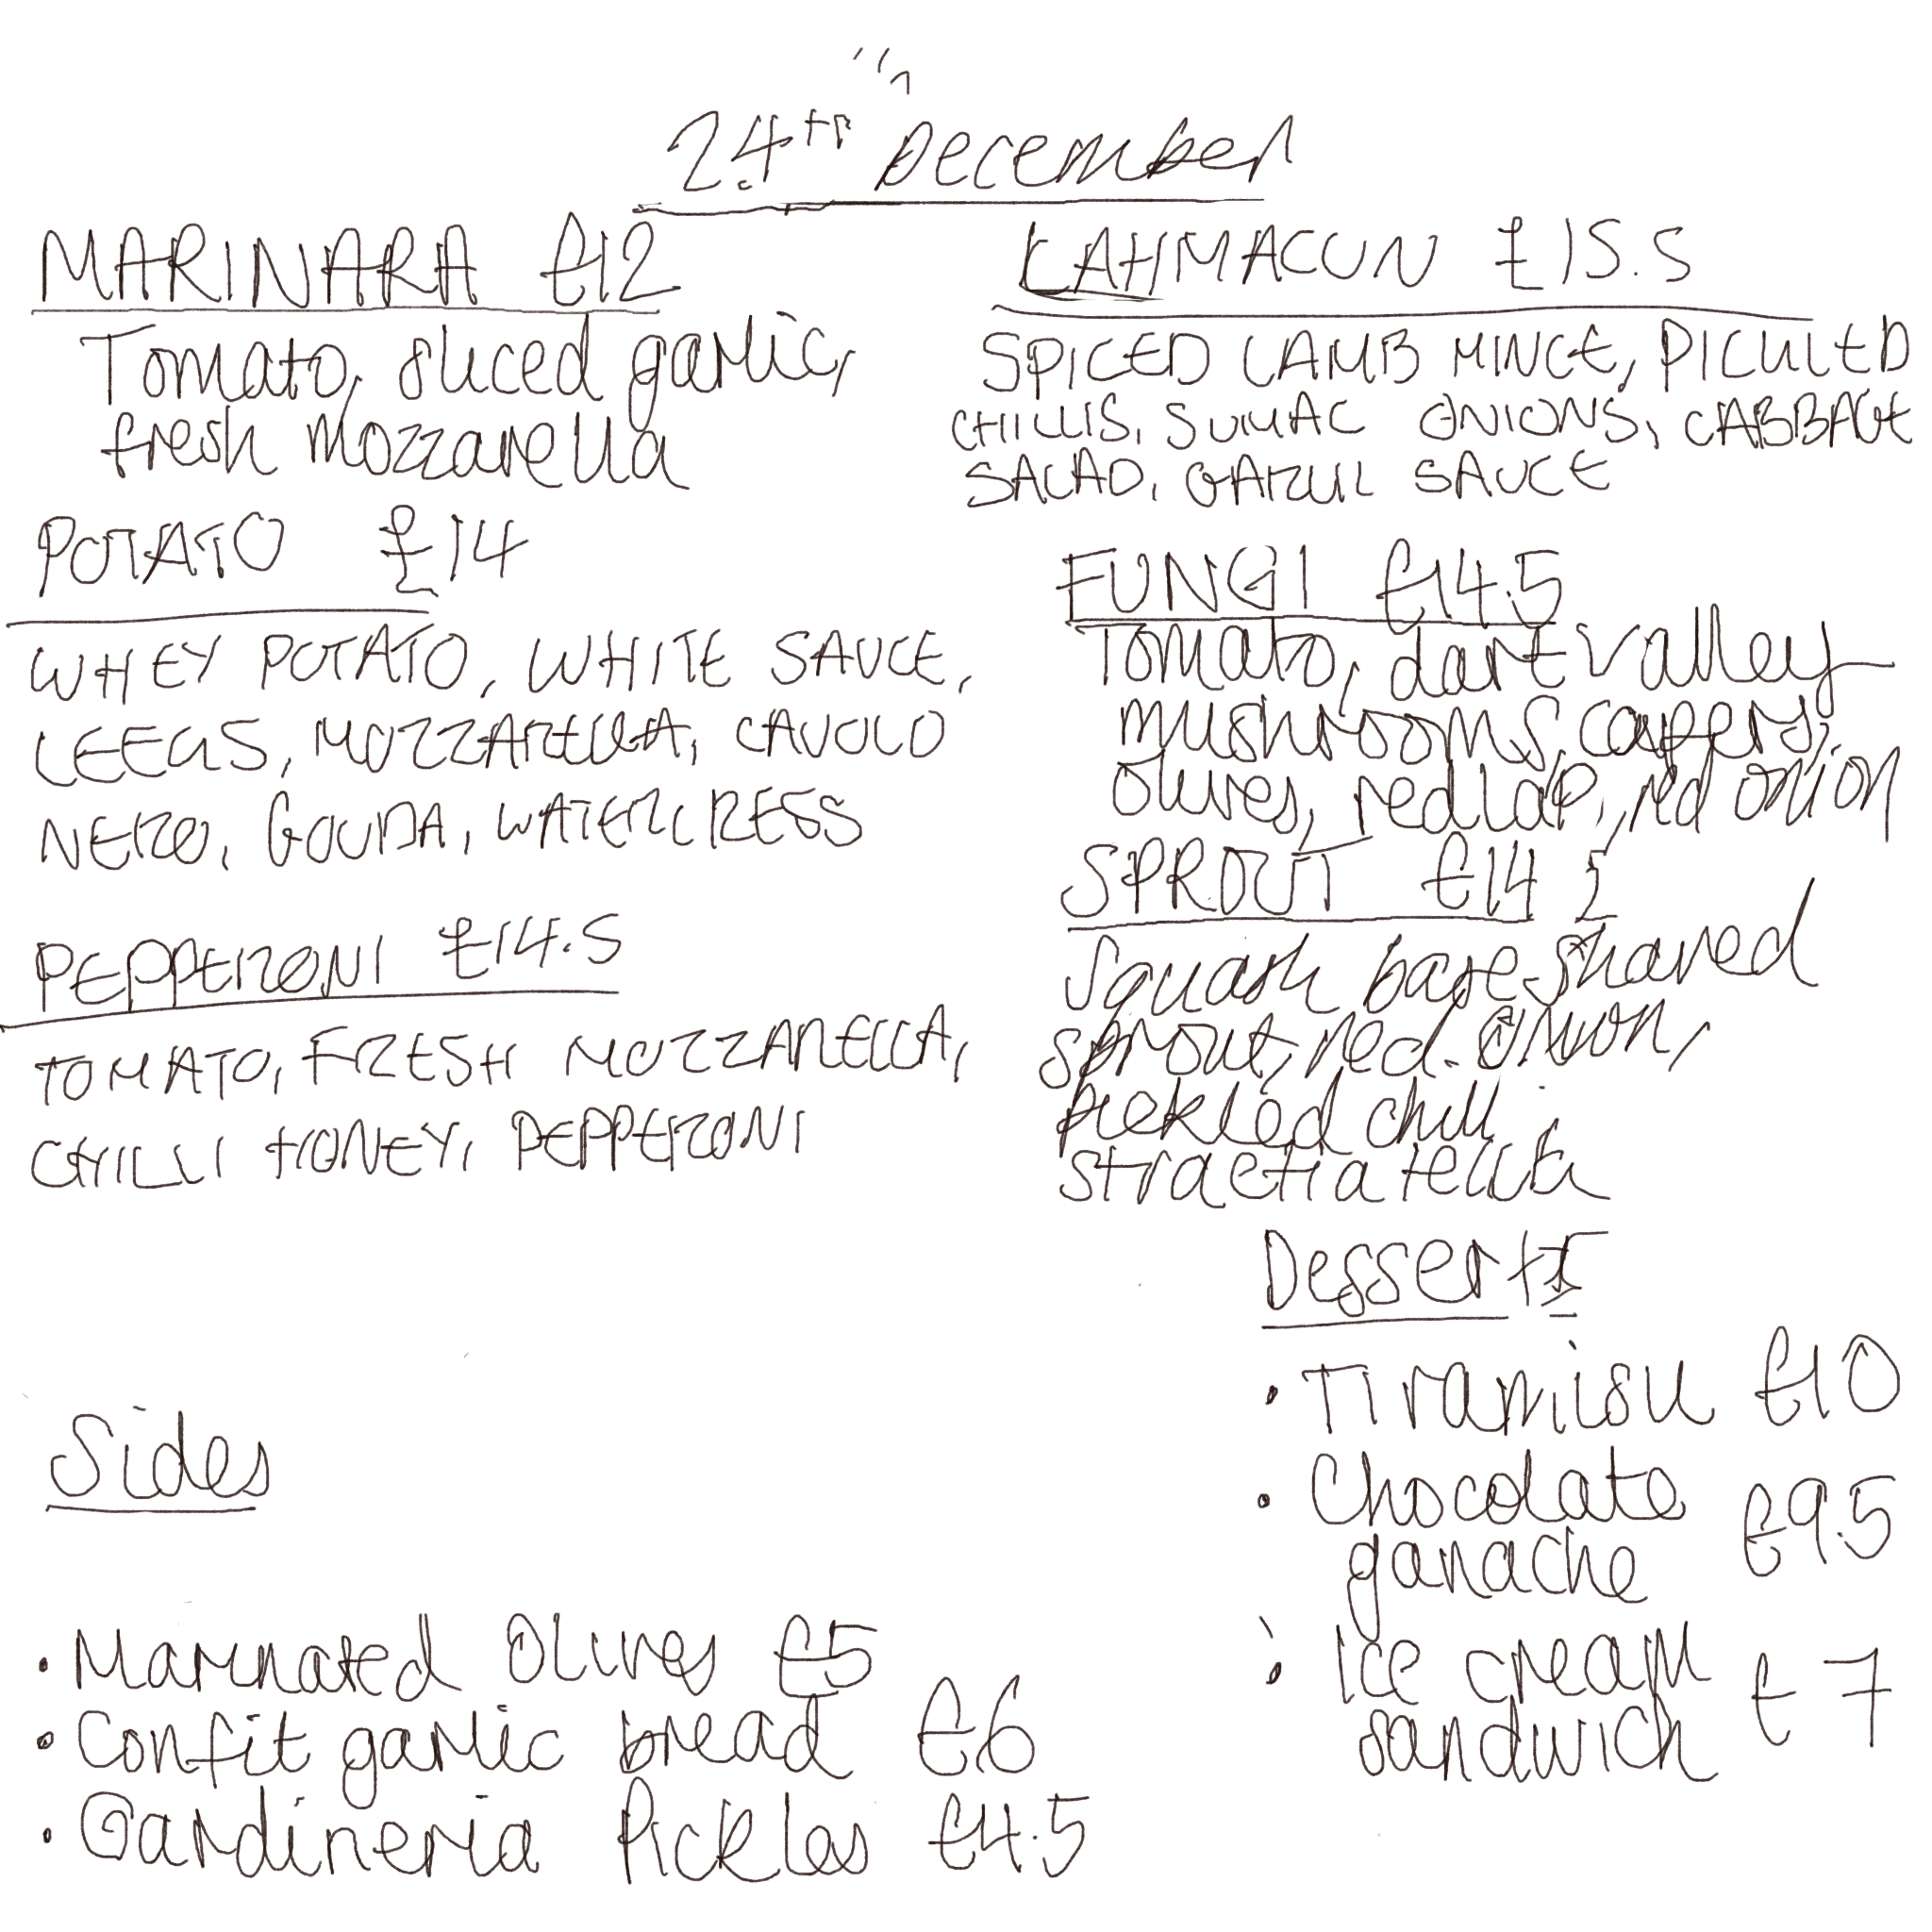 24th December
MARINARA £12
Tomato, sliced garlic,
fresh Mozzarella
POTATO £14
WHEY POTATO, WHITE SAUCE,
LEEKS, MOZZARELLA, CAVOLO
NERO, GOUDA, WATERCRESS
PEPPERONI £14.5
TOMATO, FRESH MOZZARELLA,
CHILLI HONEY, PEPPERONI
LAHMACUN £15.5
SPICED LAMB MINCE, PICKLED
CHILLIS, SUMAC ONIONS, CABBAGE
SALAD, GARLIC SAUCE
FUNGI £14.5
Tomato, dart valley
mushrooms, capers,
olives, red onion
SPROUT £14.5
Squash base, shaved
sprout, red onion,
pickled chilli
stracciatella
Sides
• Marinated Olives £5
• Confit garlic bread £6
• Gardineria Pickles £4.5
Desserts
• Tiramisu £10
• Chocolate £9.5
ganache
• Ice cream £7
sandwich